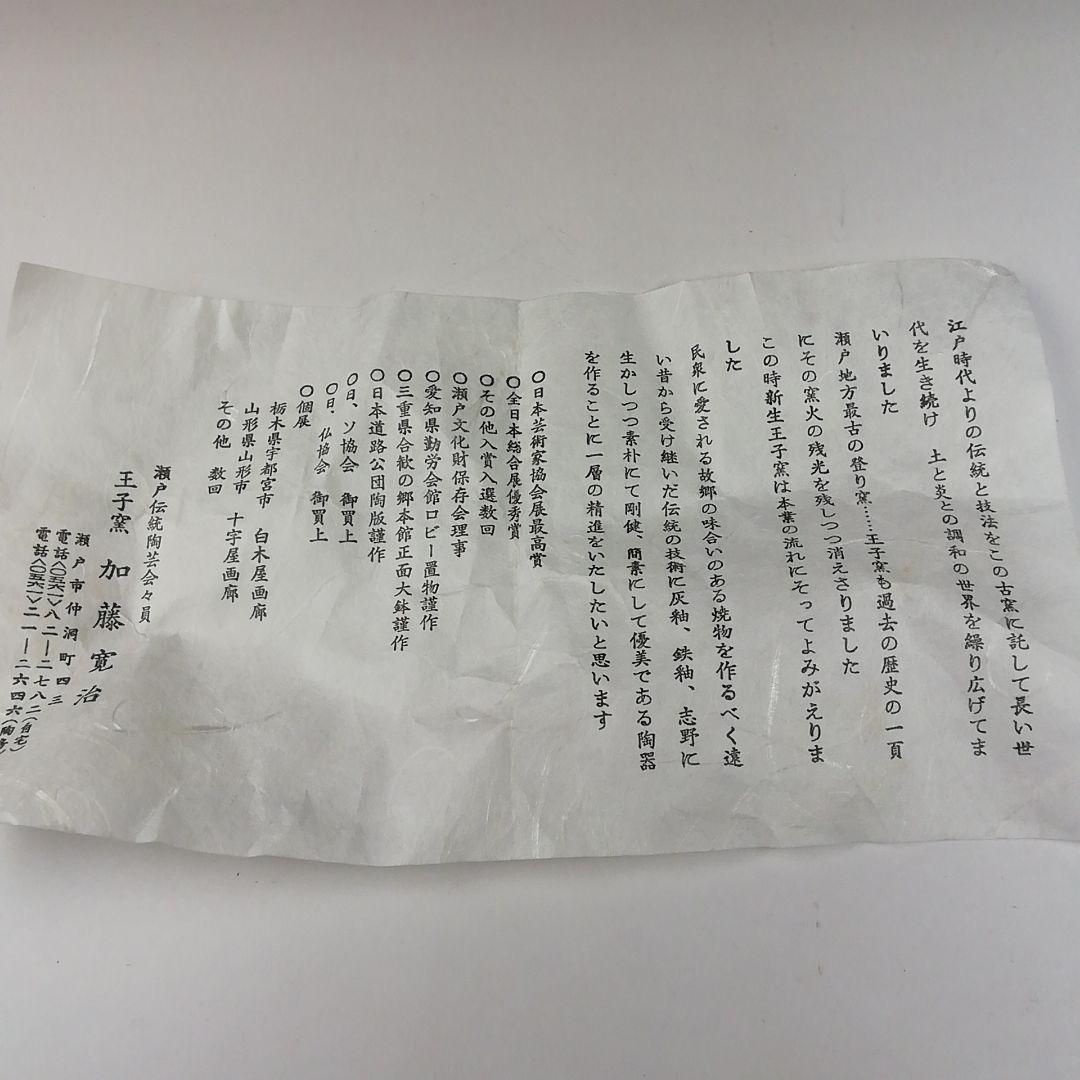 江戸時代よりの伝統と技法をこの古窯に託して長い世
代を生き続け　土と炎との調和の世界を繰り広げてま
いりました
瀬戸地方最古の登り窯……王子窯も過去の歴史の一頁
にその窯火の残光を残しつつ消えさりました
この時新生王子窯は本業の流れにそってよみがえりま
した
民衆に愛される故郷の味合いのある焼物を作るべく遠
い昔から受け継いだ伝統の技術に灰釉、鉄釉、志野に
生かしつつ素朴にて剛健、簡素にして優美である陶器
を作ることに一層の精進をいたしたいと思います
〇日本芸術家協会展最高賞
〇全日本総合展優秀賞
〇その他入賞入選数回
〇瀬戸文化財保存会理事
〇愛知県勤労会館ロビー置物謹作
〇三重県合歓の郷本館正面大鉢謹作
〇日本道路公団陶版謹作
〇日、ソ協会　御買上
〇日、仏協会　御買上
〇個展
栃木県宇都宮市　白木屋画廊
山形県山形市　十字屋画廊
その他　数回
瀬戸伝統陶芸会々員
王子窯　加藤寛治
瀬戸市仲洞町四三
電話〈〇五六一〉八二―二七八二(自宅)
電話〈〇五六一〉二一―二六四六